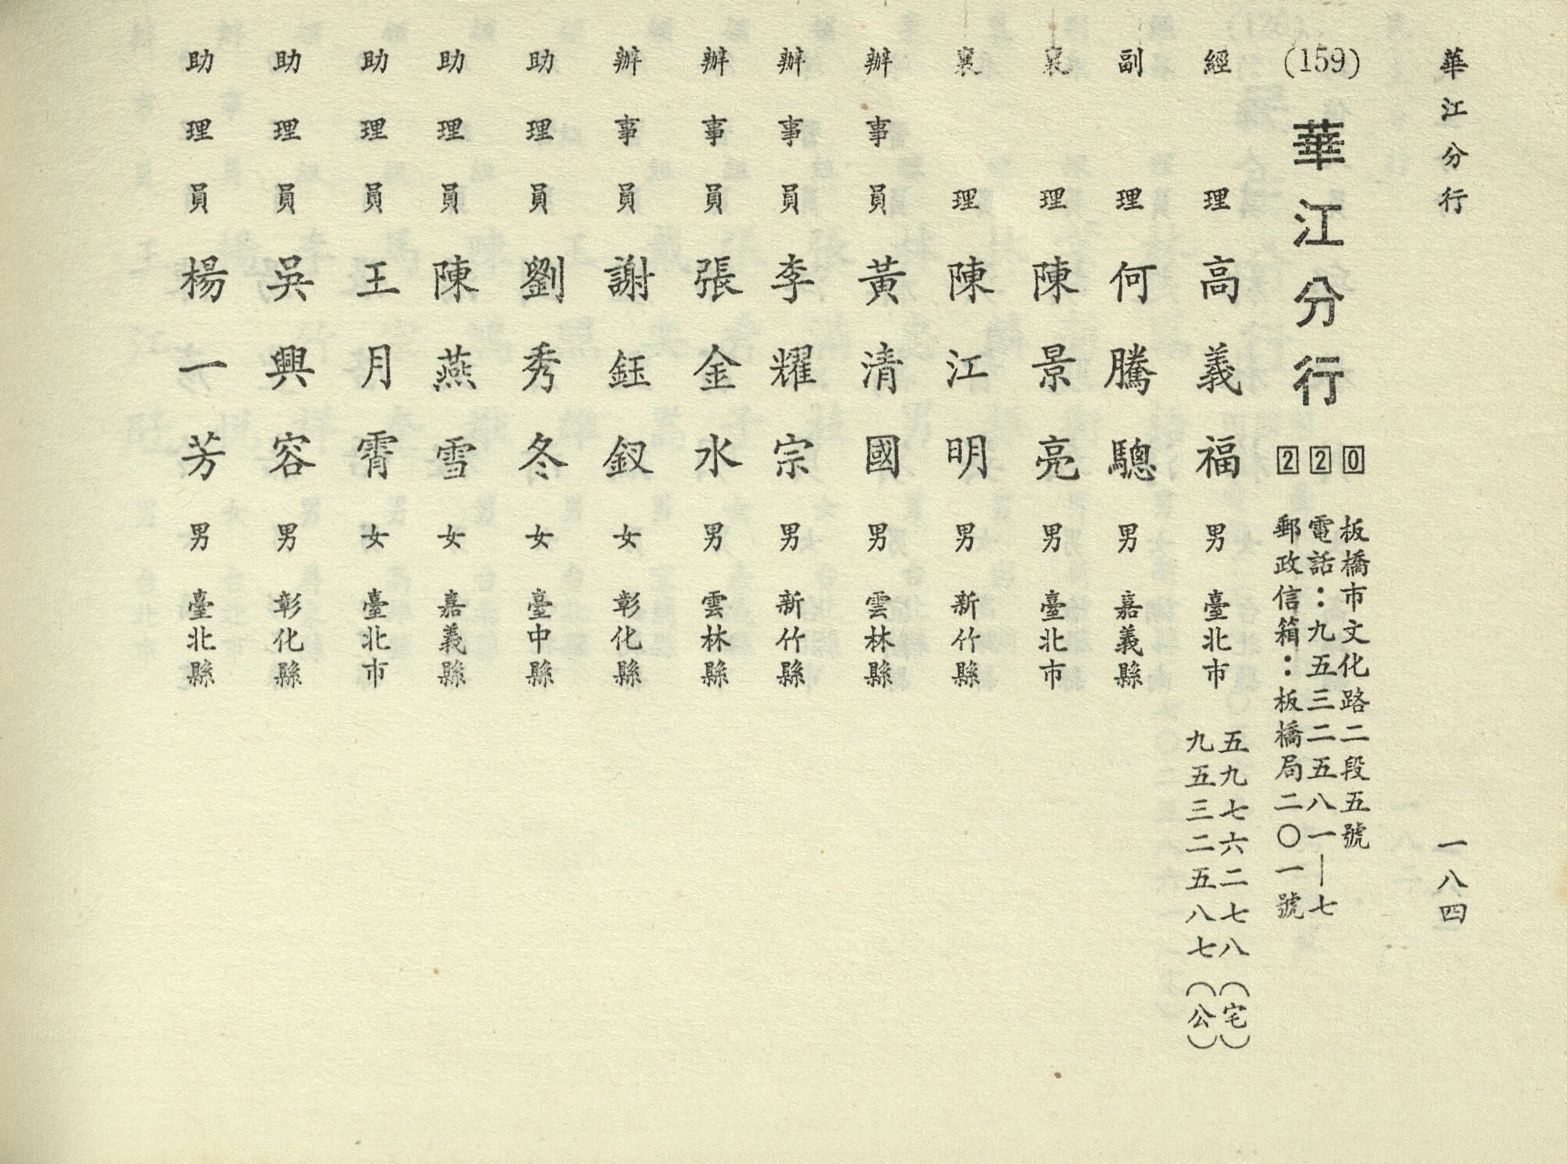 華江分行
一八四
(159) 華江分行 220
板橋市文化路二段五號
電話：九五三二五八一—七
郵政信箱：板橋局二〇一號
經理 高義福 男 臺北市
五九七六二七八（宅）
九五三二五八七（公）
副理 何騰驄 男 嘉義縣
襄理 陳景亮 男 臺北市
襄理 陳江明 男 新竹縣
辦事員 黃清國 男 雲林縣
辦事員 李耀宗 男 新竹縣
辦事員 張金水 男 雲林縣
辦事員 謝鈺釵 女 彰化縣
助理員 劉秀冬 女 臺中縣
助理員 陳燕雪 女 嘉義縣
助理員 王月霄 女 臺北市
助理員 吳興容 男 彰化縣
助理員 楊一芳 男 臺北縣